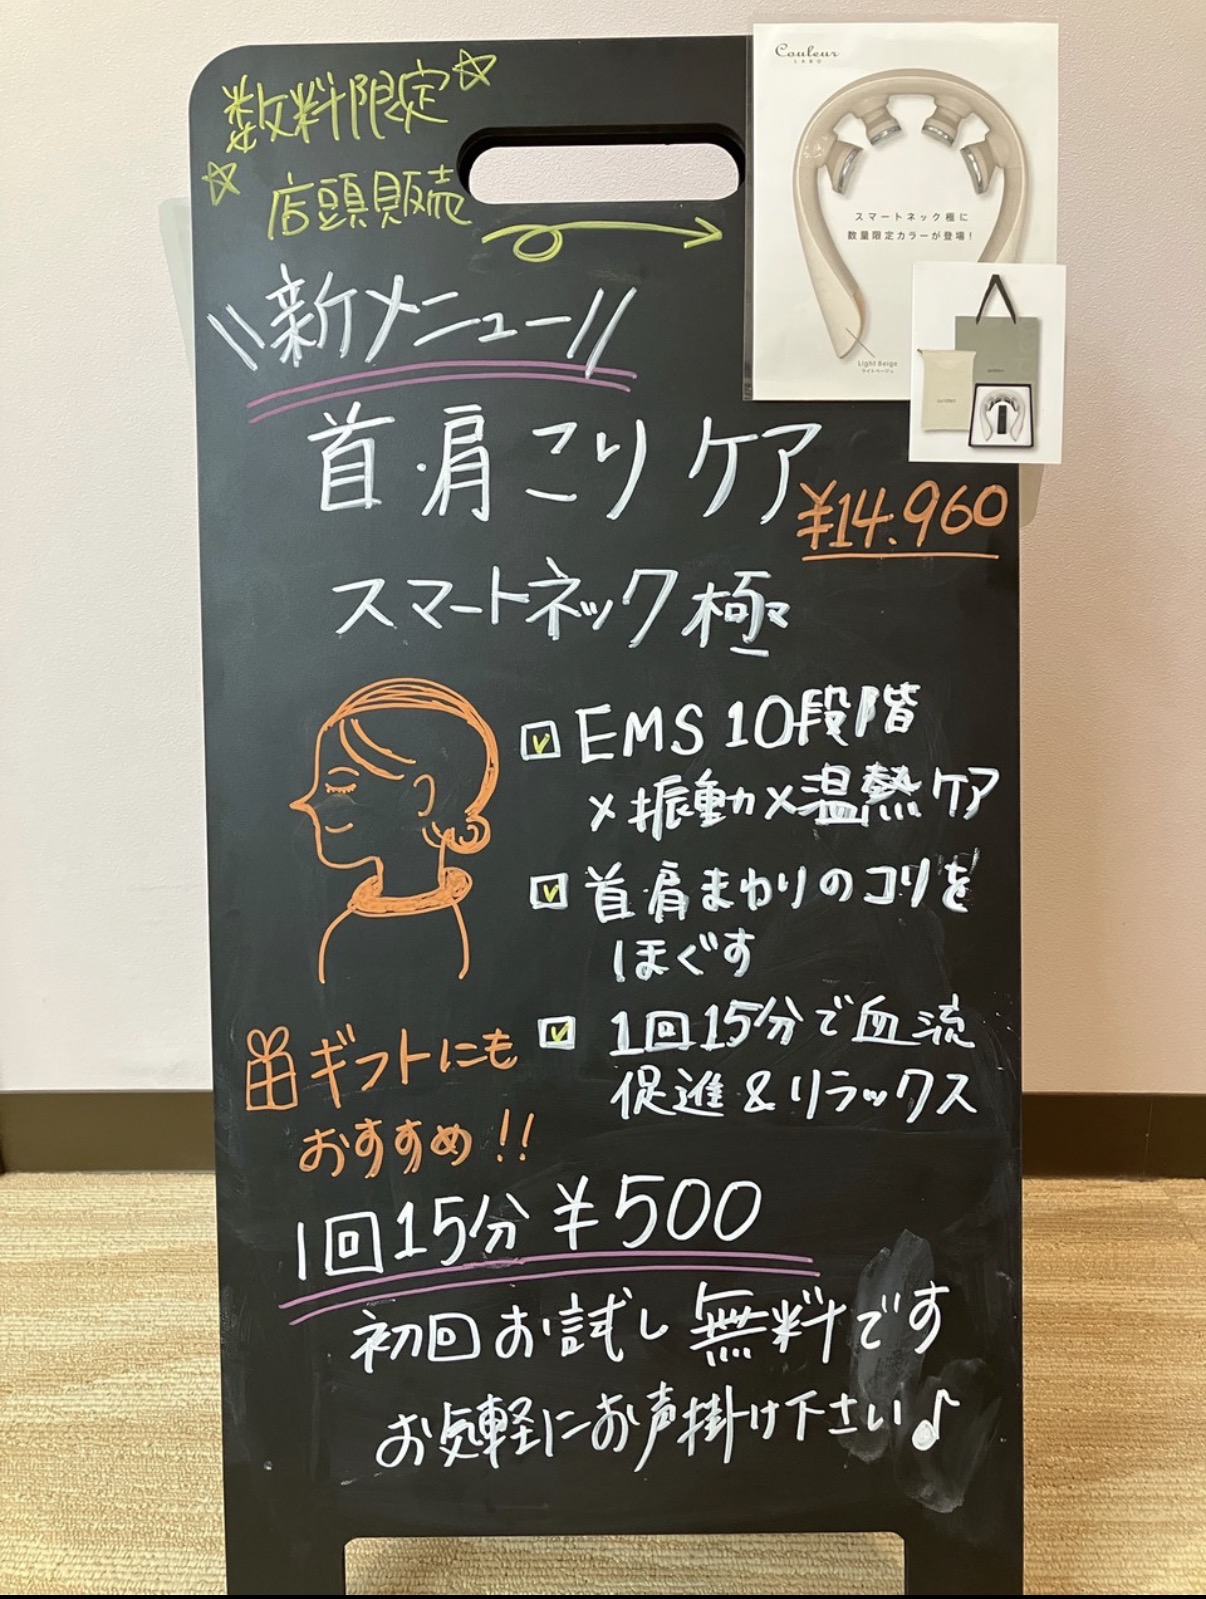 数料限定
店頭販売
Couleur
LABO
スマートネック極に
数量限定カラーが登場！
Light Beige
ライトベージュ
\\新メニュー//
首・肩こりケア
¥14.960
スマートネック極
EMS 10段階
×振動×温熱ケア
首肩まわりのコリを
ほぐす
1回15分で血流
促進&リラックス
ギフトにも
おすすめ!!
1回15分¥500
初回お試し無料です
お気軽にお声掛け下さい♪